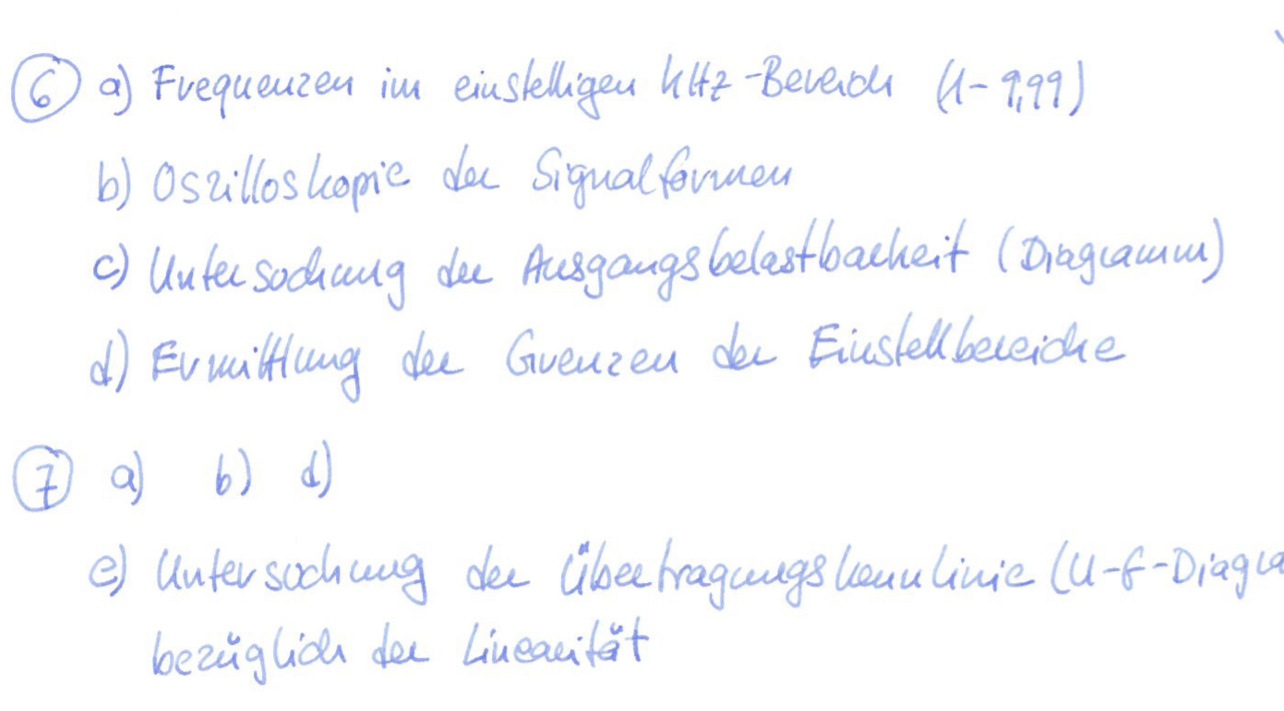 ⑥ a) Frequenzen im einstelligen kHz-Bereich (1-9,99)
b) Oszilloskopie der Signalformen
c) Untersuchung der Ausgangsbelastbarkeit (Diagramm)
d) Ermittlung der Grenzen der Einstellbereiche
⑦ a) b) d)
e) Untersuchung der Übertragungskennlinie (U-f-Diagra
bezüglich der Linearität